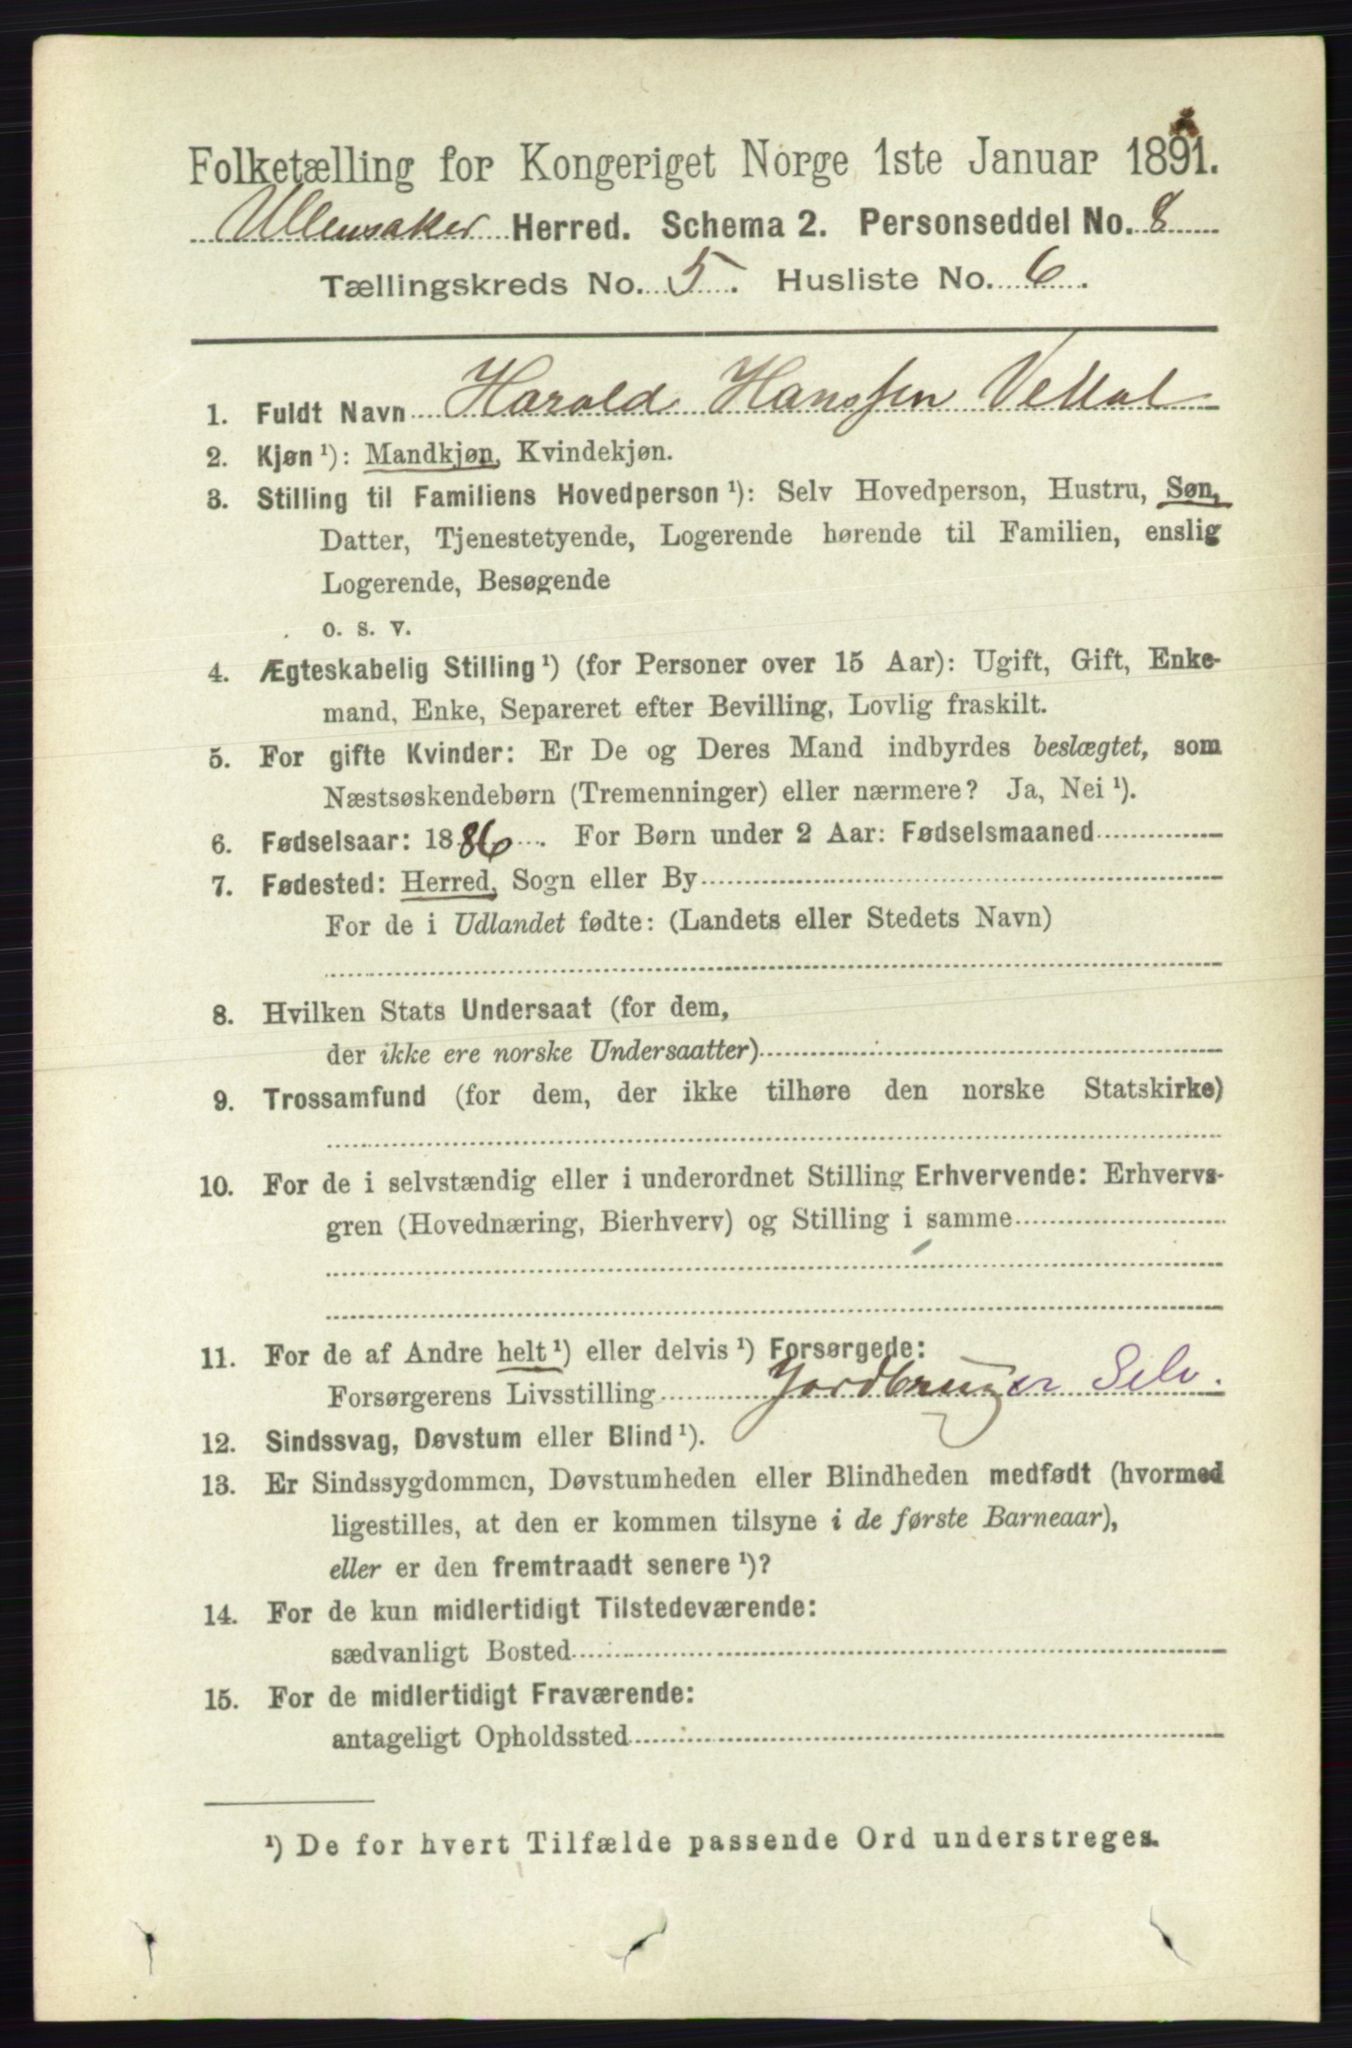 Folketælling for Kongeriget Norge 1ste Januar 1891.
Ullensaker Herred. Schema 2. Personseddel No. 8
Tællingskreds No. 5. Husliste No. 6.
1. Fuldt Navn Harald Hanssen
2. Kjøn ¹): Mandkjøn, Kvindekjøn.
3. Stilling til Familiens Hovedperson ¹): Selv Hovedperson, Hustru, Søn,
Datter, Tjenestetyende, Logerende hørende til Familien, enslig
Logerende, Besøgende
o. s. v.
4. Ægteskabelig Stilling ¹) (for Personer over 15 Aar): Ugift, Gift, Enke-
mand, Enke, Separeret efter Bevilling, Lovlig fraskilt.
5. For gifte Kvinder: Er De og Deres Mand indbyrdes beslægtet, som
Næstsøskendebørn (Tremenninger) eller nærmere? Ja, Nei ¹).
6. Fødselsaar: 1886. For Børn under 2 Aar: Fødselsmaaned
7. Fødested: Herred, Sogn eller By
For de i Udlandet fødte: (Landets eller Stedets Navn)
8. Hvilken Stats Undersaat (for dem,
der ikke ere norske Undersaatter)
9. Trossamfund (for dem, der ikke tilhøre den norske Statskirke)
10. For de i selvstændig eller i underordnet Stilling Erhvervende: Erhvervs-
gren (Hovednæring, Bierhverv) og Stilling i samme
11. For de af Andre helt ¹) eller delvis ¹) Forsørgede:
Forsørgerens Livsstilling Jordbruger Selv.
12. Sindssvag, Døvstum eller Blind ¹).
13. Er Sindssygdommen, Døvstumheden eller Blindheden medfødt (hvormed
ligestilles, at den er kommen tilsyne i de første Barneaar),
eller er den fremtraadt senere ¹)?
14. For de kun midlertidigt Tilstedeværende:
sædvanligt Bosted
15. For de midlertidigt Fraværende:
antageligt Opholdssted
¹) De for hvert Tilfælde passende Ord understreges.